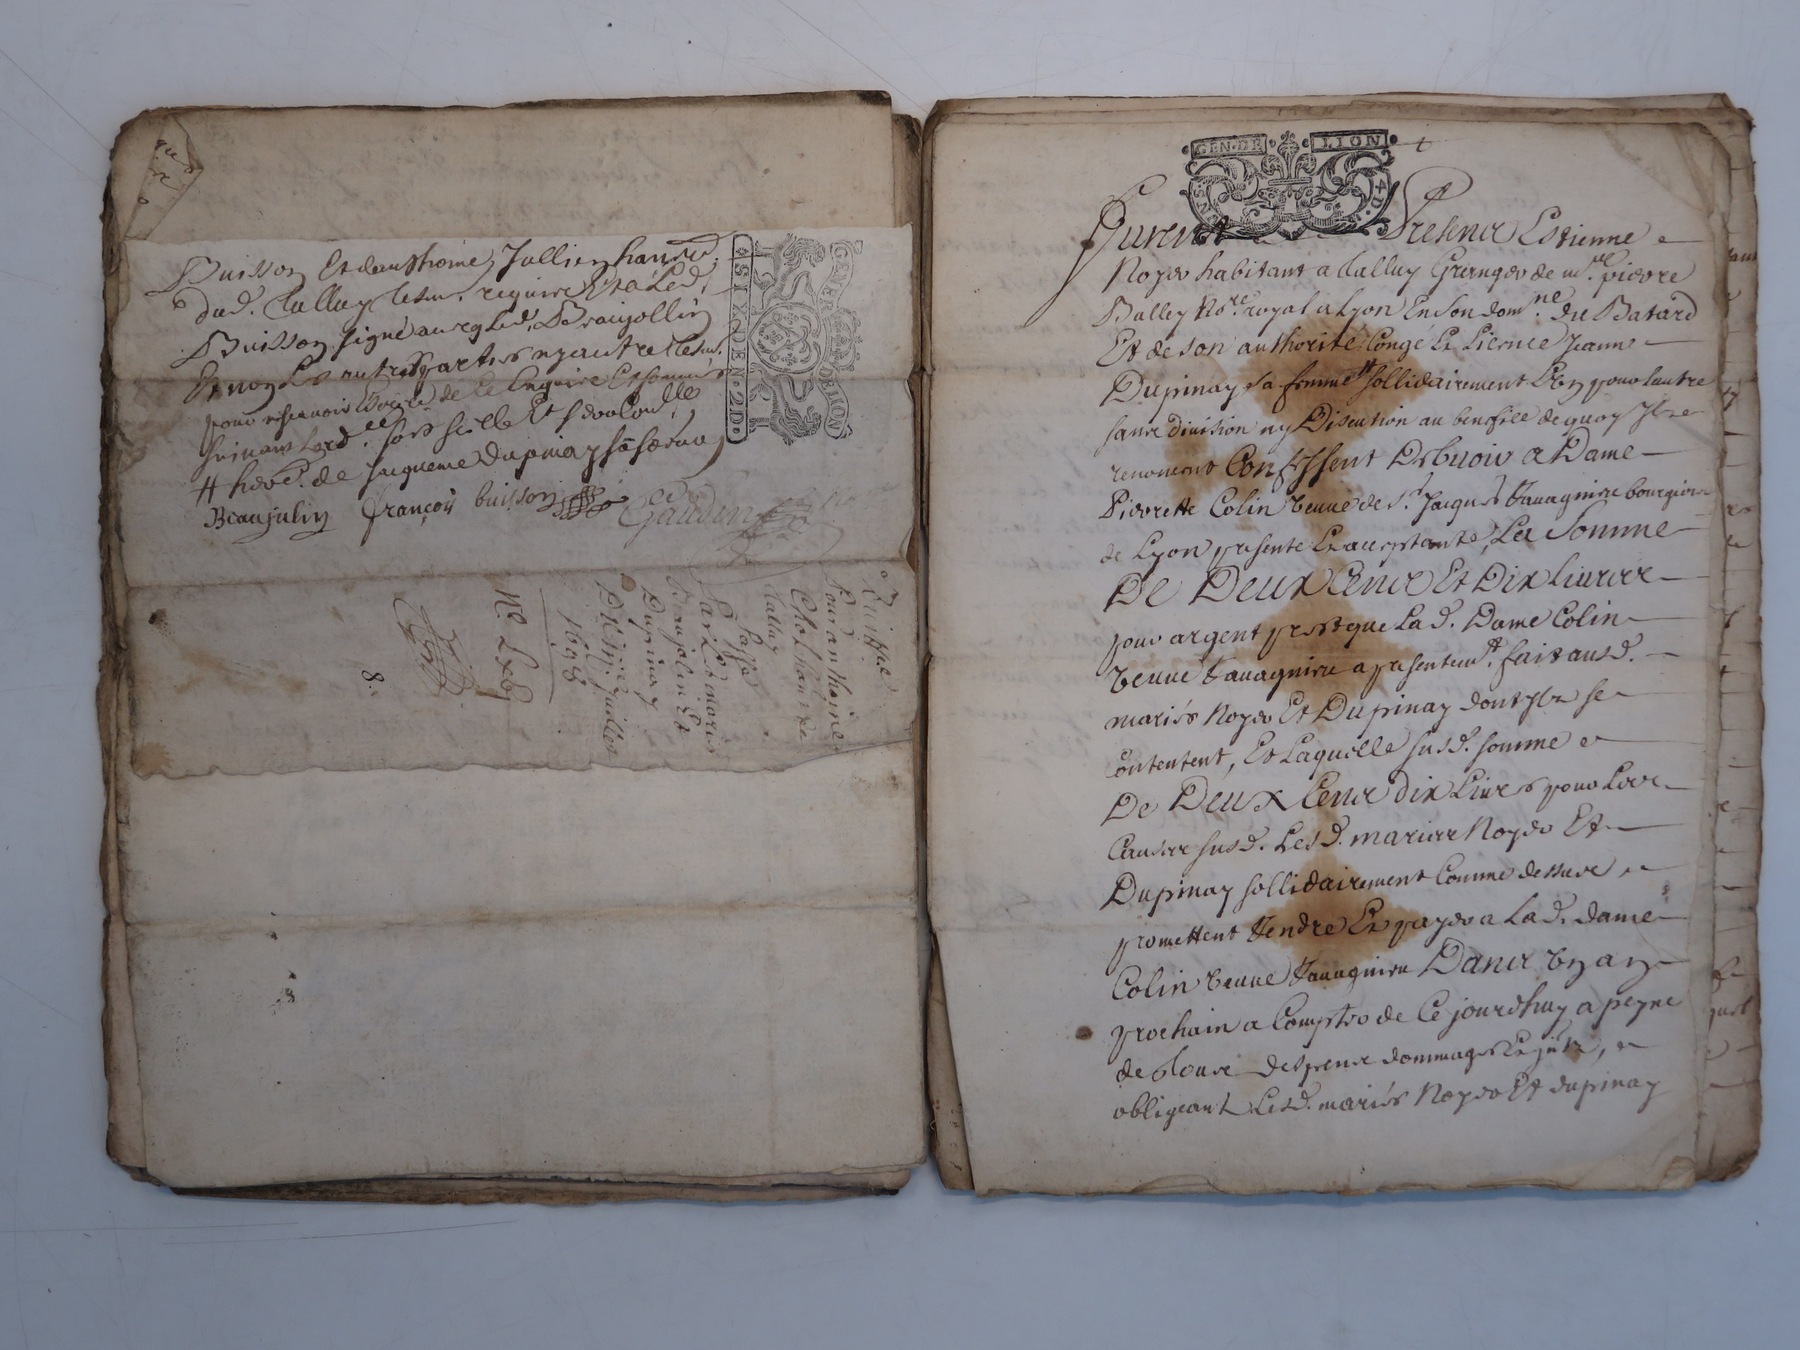 Buisson Et d'anthoine Jullien chanvr.
dud. Talluy tesm. require Et a Led.
Buisson signé avecq Led. De Beaujollin
Et non Les autres parties ny autre tesm.
pour ne scavoir Escrire de ce Enquire Et sommés
suivant Lord.ce soit scellé Et
# herd. de Jaqueme dupinay sa
Beaujulin françois buisson
Gaudin
GENER. DE LION
SIX DEN. 2D.
Quittce
Pour anthoine
Chol chanvre
Talluy
Passée
Par Les mariés
Beaujolin Et
Dupinay
Du juillet
1698
N.e Lxb
8.
GEN. DE LION
Furent Presence Estienne
Noyer habitant a Talluy Granger de m.re pierre
Balley No.re royal a Lyon En son dom.ne du Batard
Et de son authorité Congé Et Licence Jeanne
Dupinay sa femme sollidairement L'un pour l'autre
sans division ny Discution au benefice de quoy Ilz
renoncent Confessent Debvoir a Dame
Pierrette Colin veuve de S.r Jaques Favagnieu bourgeois
de Lyon presente Et acceptante, La Somme
De Deux Cens Et Dix Livres
pour argent prest que Lad. Dame Colin
veuve Favagnieu a presentem.t fait ausd.
mariés Noyer Et Dupinay dont Ilz se
Contentent, Et Laquelle susd. somme
De Deux Cens dix Livres pour Les
Causes susd. Lesd. mariés Noyer Et
Dupinay sollidairement Comme dessus
promettent Rendre Et payer a Lad. dame
Colin veuve Favagnieu Dans un an
prochain a Compter de Ce jourdhuy a peyne
de tous despens dommages Et
obligeant Lesd. mariés Noyer Et dupinay